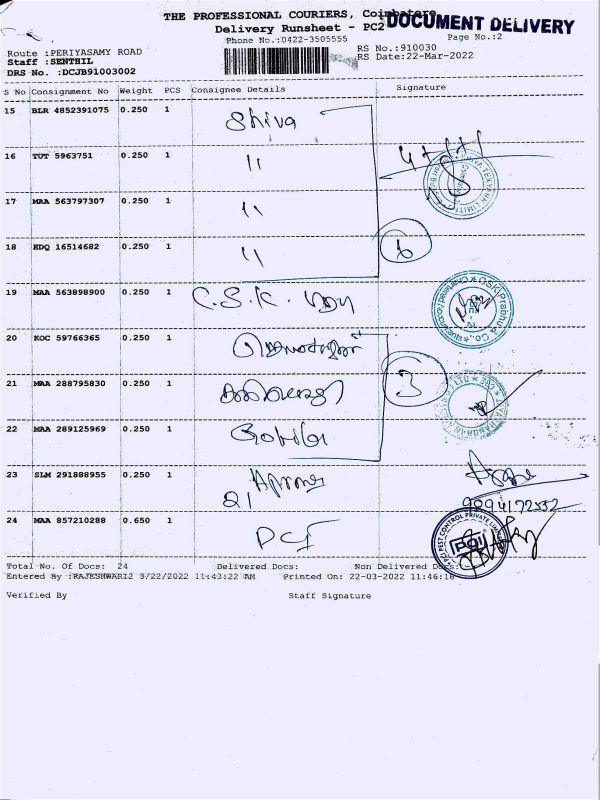 THE PROFESSIONAL COURIERS, Coimbatore
DOCUMENT DELIVERY
Delivery Runsheet - PC2
Page No.:2
Phone No.:0422-3505555
Route :PERIYASAMY ROAD
RS No.:910030
Staff :SENTHIL
RS Date:22-Mar-2022
DRS No. :DCJB91003002
S No Consignment No Weight PCS Consignee Details Signature
15 BLR 4852391075 0.250 1 Shiva
16 TUT 5963751 0.250 1 "
17 MAA 563797307 0.250 1 "
18 EDQ 16514682 0.250 1 " 6
19 MAA 563898900 0.250 1 C.S.K.
20 KOC 59766365 0.250 1
21 MAA 288795830 0.250 1 3
22 MAA 289125969 0.250 1
23 SLM 291888955 0.250 1
21
9894172552
24 MAA 857210288 0.650 1 PCI
PCI PEST CONTROL PRIVATE LIMITED
Total No. Of Docs: 24 Delivered Docs: Non Delivered Docs:
Entered By :RAJESHWARI2 3/22/2022 11:43:22 AM Printed On: 22-03-2022 11:46:16
Verified By Staff Signature